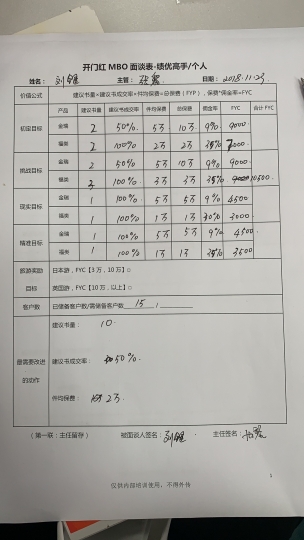 开门红 MBO 面谈表-绩优高手/个人
姓名： 主管： 日期：2018.11.23
价值公式 建议书量*建议书成交率*件均保费=总保费（FYP），保费*佣金率=FYC
产品 建议书量 建议书成交率 件均保费 总保费 佣金率 FYC 合计 FYC
初定目标 金瑞 2 50% 5万 10万 9% 9000
福类 2 100% 2万 2万 35% 7000
挑战目标 金瑞 2 50% 5万 10万 9% 9000
福类 3 100% 3万 3万 35% 10500
现实目标 金瑞 1 100% 5万 5万 9% 4500
福类 1 100% 1万 1万 30% 3000
精准目标 金瑞 1 100% 5万 5万 9% 4500
福类 1 100% 1万 1万 35% 3500
旅游奖励目标 日本游，FYC【3 万，10 万】□
英国游，FYC【10 万，以上】□
客户数 已储备客户数/需储备客户数 15 /
最需要改进的动作
建议书量： 10
建议书成交率： 50%
件均保费： 2万
（ 第一联：主任留存 ） 被面谈人签名： 主任签名：
1
仅供内部培训使用，不得外传